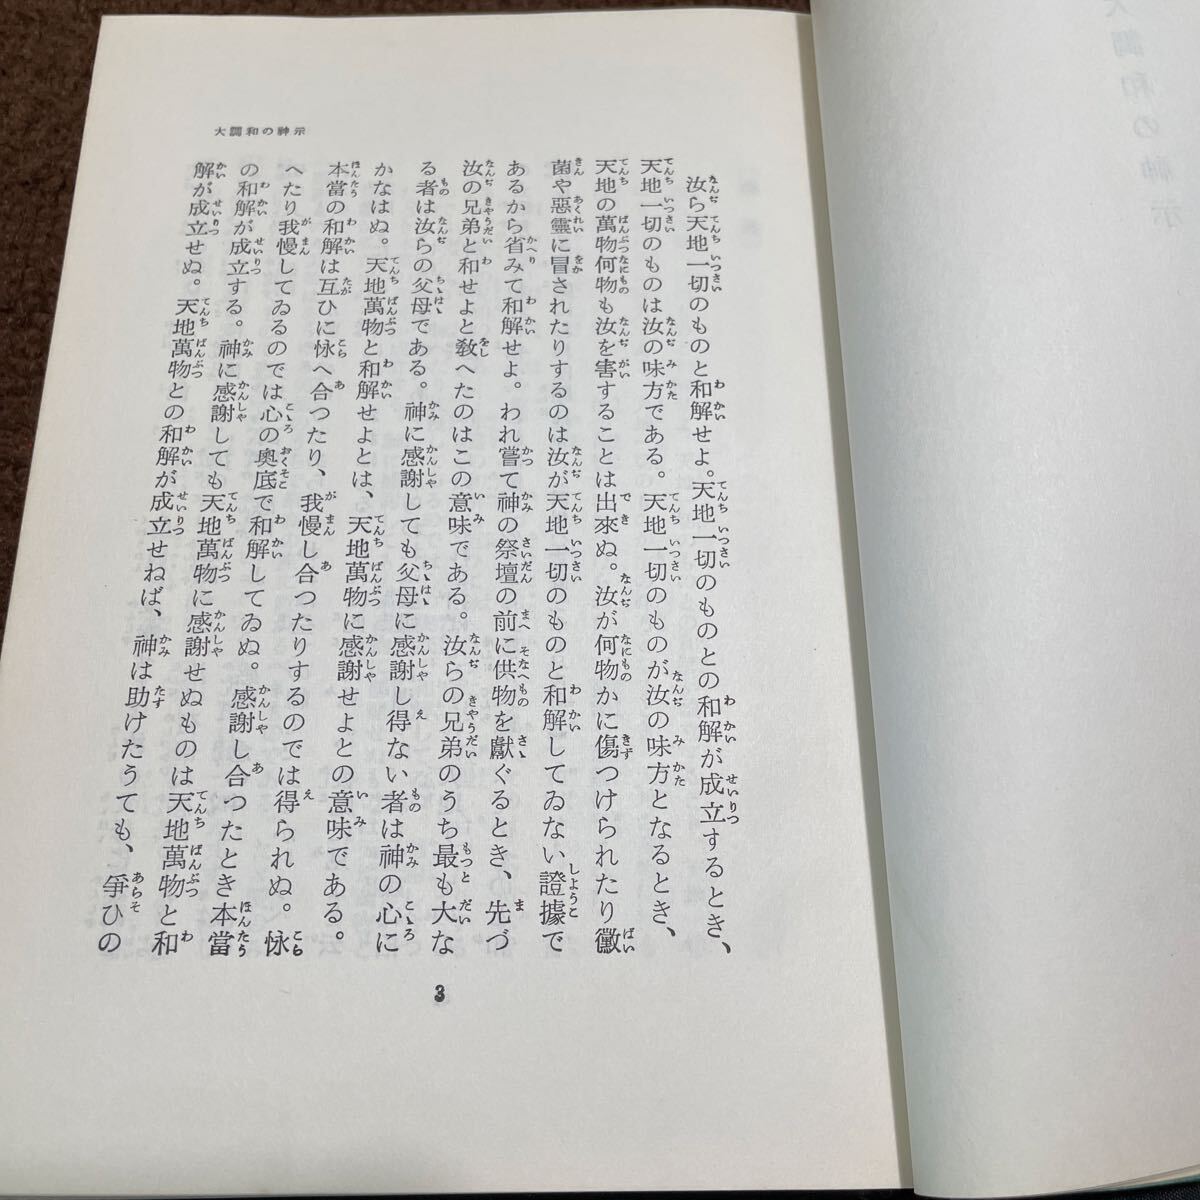 大調和の神示
汝ら天地一切のものと和解せよ。天地一切のものとの和解が成立するとき、
天地一切のものは汝の味方である。天地一切のものが汝の味方となるとき、
天地の萬物何物も汝を害することは出來ぬ。汝が何物かに傷つけられたり黴
菌や惡靈に冒されたりするのは汝が天地一切のものと和解してゐない證據で
あるから省みて和解せよ。われ嘗て神の祭壇の前に供物を獻ぐるとき、先づ
汝の兄弟と和せよと敎へたのはこの意味である。汝らの兄弟のうち最も大な
る者は汝らの父母である。神に感謝しても父母に感謝し得ない者は神の心に
かなはぬ。天地萬物と和解せよとは、天地萬物に感謝せよとの意味である。
本當の和解は互ひに怺へ合つたり、我慢し合つたりするのでは得られぬ。怺
へたり我慢してゐるのでは心の奥底で和解してゐぬ。感謝し合つたとき本當
の和解が成立する。神に感謝しても天地萬物に感謝せぬものは天地萬物と和
解が成立せぬ。天地萬物との和解が成立せねば、神は助けたうても、爭ひの
3
大調和の神示